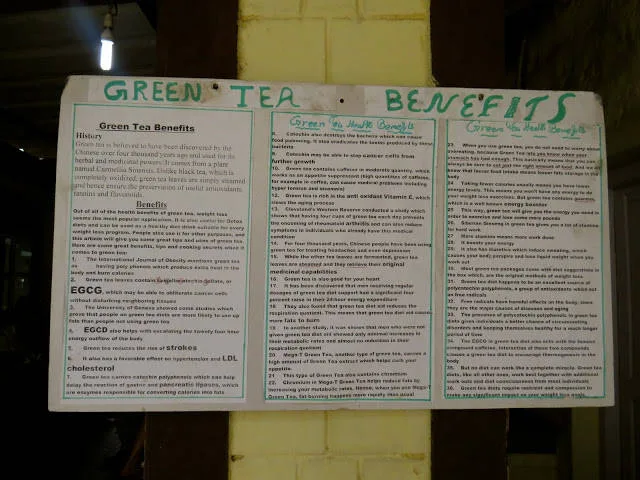 GREEN TEA BENEFITS
Green Tea Benefits
History
Green tea is believed to have been discovered by the
Chinese over four thousand years ago and used for its
herbal and medicinal powers. It comes from a plant
named Carmellia Sinensis. Unlike black tea, which is
completely oxidized, green tea leaves are simply steamed
and hence ensure the preservation of useful antioxidants,
tannins and flavonoids
Benefits
Out of all of the health benefits of green tea, weight loss
seems the most popular application. It is also useful for Detox
diets and can be used as a healthy diet drink suitable for every
weight loss program. People also use it for other purposes, and
this article will give you some great tips and uses of green tea.
Here are some great benefits, tips and cooking secrets when it
comes to green tea:
1. The International Journal of Obesity mentions green tea
as having poly phenols which produce extra heat in the
body and burn calories
2. Green tea leaves contain Epigallocatechin gallate, or
EGCG, which may be able to obliterate cancer cells
without disturbing neighboring tissues
3. The University of Geneva showed some studies which
prove that people on green tea diets are more likely to use up
fats than people not using green tea
4. EGCD also helps with escalating the twenty four hour
energy outflow of the body
5. Green tea reduces the risk of strokes
6. It also has a favorable effect on hypertension and LDL
cholesterol
7. Green tea carries catechin polyphenols which can help
delay the reaction of gastric and pancreatic lipases, which
are enzymes responsible for converting calories into fats
Green Tea Health Benefits
8. Catechin also destroys the bacteria which can cause
food poisoning. It also eradicates the toxins produced by these
bacteria
9. Catechin may be able to stop cancer cells from
further growth
10. Green tea contains caffeine in moderate quantity, which
works as an appetite suppressant (high quantities of caffeine,
for example in coffee, can cause medical problems including
hyper tension and insomnia)
12. Green tea is rich in the anti oxidant Vitamin E, which
slows the aging process
13. Cleveland's Western Reserve conducted a study which
shows that having four cups of green tea each day prevents
the oncoming of rheumatoid arthritis and can also reduce
symptoms in individuals who already have this medical
condition
14. For four thousand years, Chinese people have been using
green tea for treating headaches and even depression
15. While the other tea leaves are fermented, green tea
leaves are steamed and they retrieve their original
medicinal capabilities
16. Green tea is also good for your heart
17. It has been discovered that men receiving regular
dosages of green tea diet support had a significant four
percent raise in their 24/hour energy expenditure
18. They also found that green tea diet aid reduces the
respiration quotient. This means that green tea diet aid causes
more fats to burn
19. In another study, it was shown that men who were not
given green tea diet aid showed only minimal increases in
their metabolic rates and almost no reduction in their
respiration quotient
20. Mega-T Green Tea, another type of green tea, carries a
high amount of Green Tea extract which helps curb your
appetite.
21 This type of Green Tea also contains chromium
22. Chromium in Mega-T Green Tea helps reduce fats by
increasing your metabolic rates. Hence, when you use Mega-T
Green Tea, fat burning happens more rapidly than usual
Green Tea Health Benefits
23. When you use green tea, you do not need to worry about
overeating, because Green Tea lets you know when your
stomach has had enough. This actually means that you can
always be sure to eat just the right amount of food. And we all
know that lesser food intake means lower fats storage in the
body
24. Taking fewer calories usually means you have lower
energy levels. This means you won't have any energy to do
your weight loss exercises. But Green tea contains
which is a well known energy booster
25 This way, green tea will give you the energy you need in
order to exercise and lose some more pounds
26. Siberian Ginseng in green tea gives you a lot of stamina
for hard work
27. More stamina means more work done
28 It boosts your energy
29. It also has diuretics which induce sweating, which
causes your body perspire and lose liquid weight when you
work out
30. Most green tea packages come with diet suggestions in
the box which, are the original methods of weight loss.
31. Green tea diet happens to be an excellent source of
polycatechin polyphenols, a group of antioxidants which out
an free radicals
32. Free radicals have harmful effects on the body, since
they are the major causes of diseases and aging
33. The presence of polycatechin polyphenols in green tea
diets gives individuals a better chance of circumventing
disorders and keeping themselves healthy for a much longer
period of time
34. The EGCG in green tea diet also acts with the famous
compound caffeine. Interaction of these two compounds
causes a green tea diet to encourage thermogenesis in the
body
35. But no diet can work like a complete miracle. Green tea
diets, like all other ones, work best together with additional
work outs and diet consciousness from most individuals
36. Green tea diets require restraint and compassion to
make any significant impact on your weight loss goals